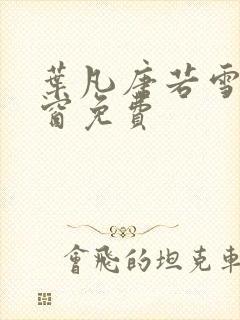 葉凡唐若雪
窗免費
會飛的坦克車